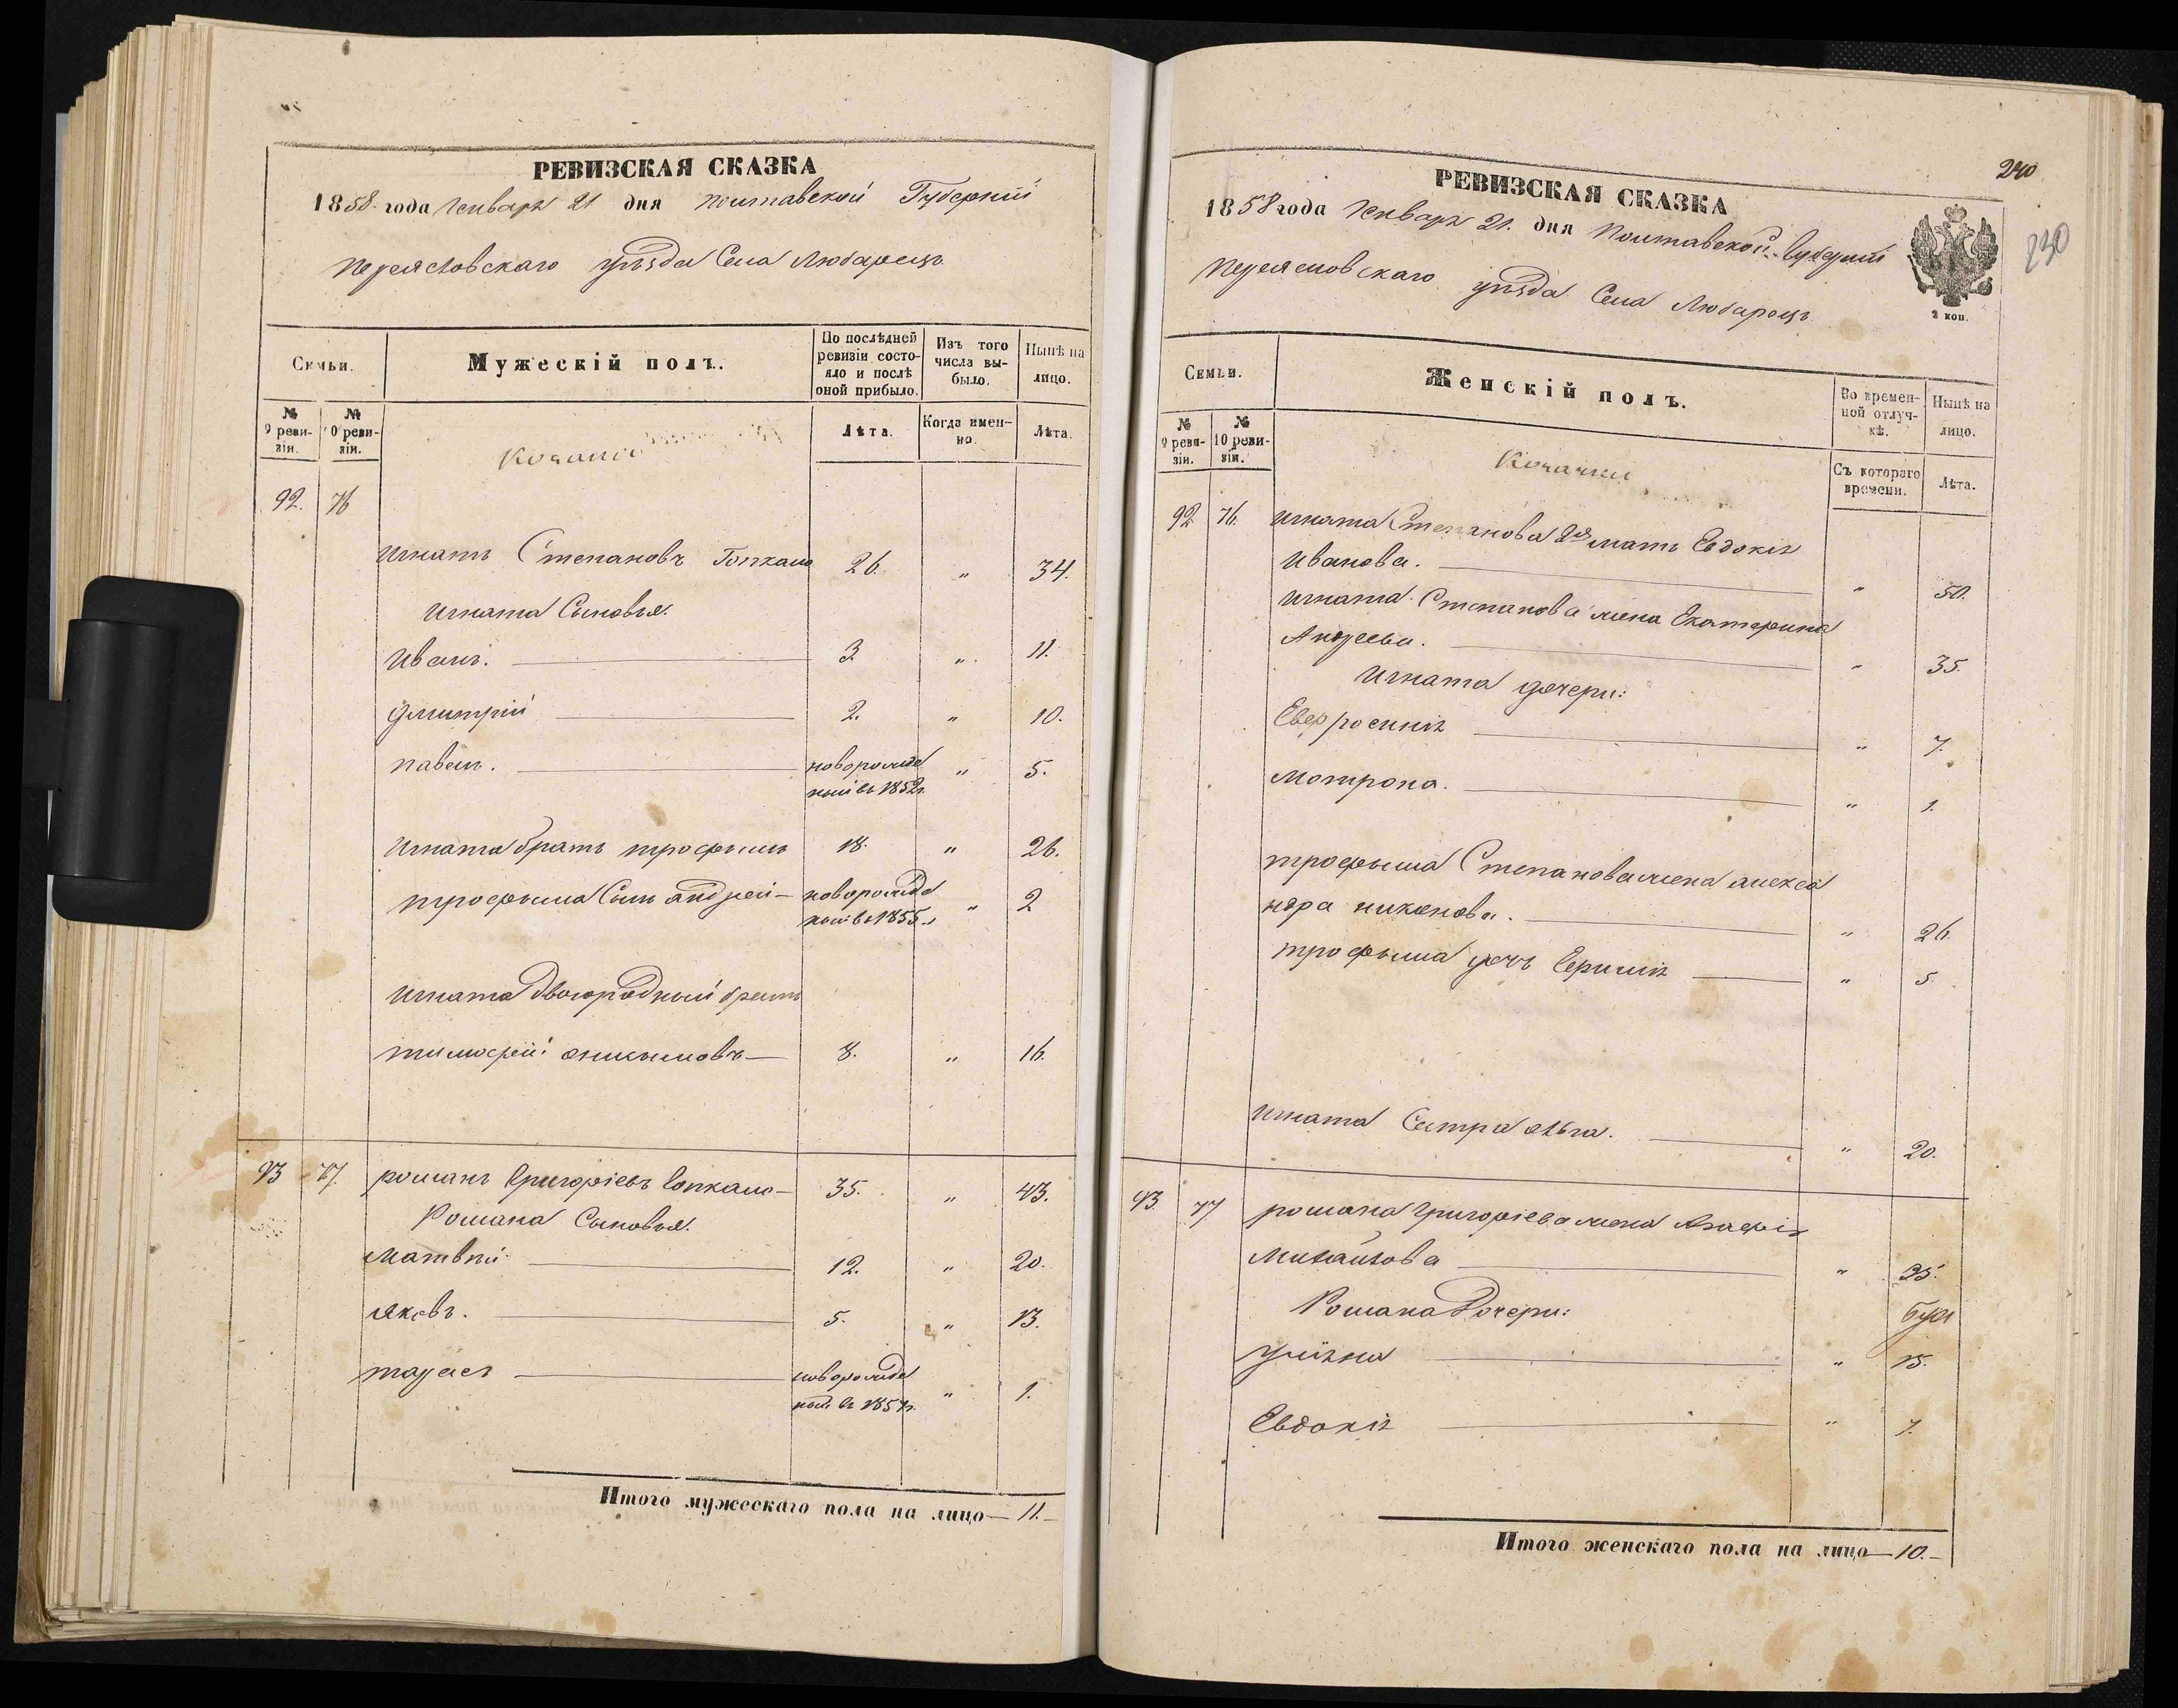 РЕВИЗСКАЯ СКАЗКА
1858 года Января 21 дня Полтавской Губерніи
Переяславскаго уѣзда Села Любарецъ
Семьи.
Мужескій полъ.
По послѣдней ревизіи состояло и послѣ оной прибыло.
Изъ того числа выбыло.
Нынѣ на лицо.
№ 9 ревизіи.
№ 10 ревизіи.
Лѣта.
Когда именно.
Лѣта.
92. 76
Игнатъ Степановъ Гопкало 26. " 34.
Игната Сыновья.
Иванъ. 3. " 11.
Дмитрій 2. " 10.
Павелъ. новорожде
ный въ 1852г. " 5.
Игната братъ трофымъ 18. " 26.
трофыма Сынъ андрей новорожде
ный въ 1855 " 2
Игната двоюродный братъ
тимофей 8. " 16.
93 77. романъ Григоріевъ Гопкало 35. " 43.
Романа Сыновья.
Матвѣй 12. " 20.
Яковъ. 5. " 13.
тарасъ новорожде
ный въ 1857г. " 1.
Итого мужескаго пола на лицо 11.
240
230
РЕВИЗСКАЯ СКАЗКА
1858 года Января 21. дня Полтавской Губерніи
Переяславскаго уѣзда Села Любарецъ
2 коп.
Семьи.
Женскій полъ.
Во временной отлучкѣ.
Нынѣ на лицо.
№ 9 ревизіи.
№ 10 ревизіи.
Казачки
Съ котораго времени.
Лѣта.
92 76. Игната Степанова мать Евдокія
Иванова. " 50.
Игната Степанова жена Екатерина
Андреева. " 35.
Игната дочери:
Евфросинія " 7.
Мотрона. " 1.
трофыма Степанова жена алекса
ндра никонова. " 26.
трофыма дочь " 5.
Игната Сестра " 20.
93. 77 романа Григоріева жена Агафія
Михайлова " 35.
Романа Дочери:
Уліяна " 15.
Евдокія " 7.
Итого женскаго пола на лицо 10.